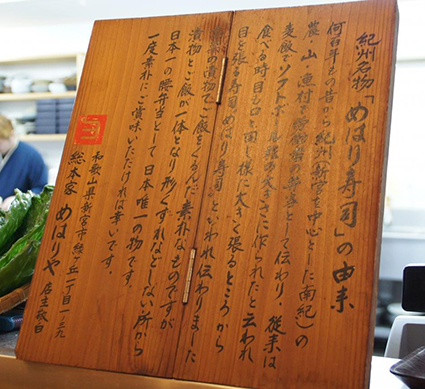 紀州名物「めはり寿司」の由来
何百年もの昔から紀州新宮を中心とした(南紀)の
農・山・漁村で労働者の弁当として伝わり、従来は
麦飯でソフトボール張の大きさに作られたと云われ
食べる時目も口と同様に大きく張るところから
目を張る寿司「めはり寿司」といわれ伝わりました
高菜の漬物でご飯をくるんだ素朴なものですが
漬物とご飯が一体となり形くずれなどしない所から
日本一の腰弁当として日本唯一の物です。
一度素朴にご賞味いただければ幸いです。
和歌山県新宮市緑ヶ丘二丁目一ノ三九
総本家 めはりや 店主敬白